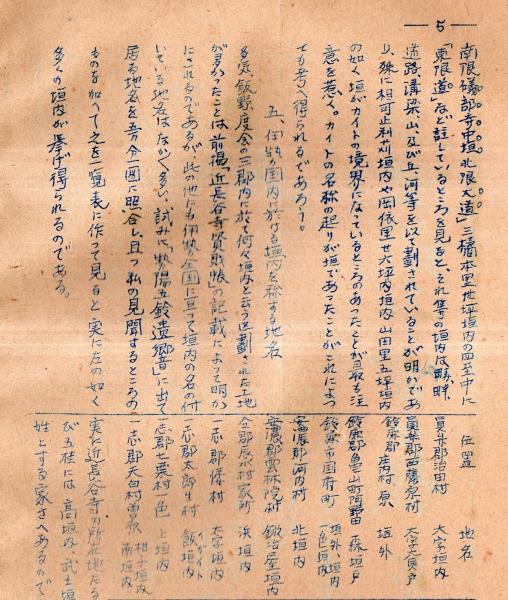 — 5 —
南限礒部寺中垣北限大道」三橋本里卅坪垣内の四至中に
「東限道」など註しているところを見ると、それ等の垣内は畷、畔、
道路、溝梁山、及び上、河等を以て劃されていることが明かであ
り、殊に相可止利苅垣内や岡依里廿六坪内垣内山田里五坪垣内
の如く垣がカイトの境界になっているところのあったことが最も注
意を惹く。カイトの名称の起りが垣であったことがこれによっ
ても考へ得られるであらう。
五、伊勢の国内に於ける垣内を称する地名
多気、飯野、度会の三郡内に於て何々垣内と云う区劃された土地
が多かったことは前掲「近長谷寺資財帳」の記載によって明か
にされるのであるが此の他にも伊勢全国に亘って垣内の名の付
いている地名はなかく多い、試みに「勢陽五鈴遺郷音」に出て
居る地名を吾今一図に照合し、且つ私の見聞するところの
ものを加へて之を一覧表に作って見ると実に左の如く
多くの垣内が挙げ得られるのである。
位置 地名
員弁郡治田村 大字垣内
員弁郡西藤原村 大字大貝戸
鈴鹿郡庄内村 原 垣外
鈴鹿郡亀山町阿野田 森垣戸
鈴鹿市国府町 垣外、垣内 一色垣内
安濃郡河内村 北垣内
安濃郡雲林院村 鍛冶屋垣内
仝郡辰水村家所 浜垣内
一志郡倭村 大字垣内
一志郡太郎生村 飯垣内 イガイト
一志郡七栗村一色 上垣内
一志郡大白村曽原 柑子垣内 南垣内
実に近長谷寺の所在地たる
び五桂には高垣内、武士垣
姓とする家さへあるので